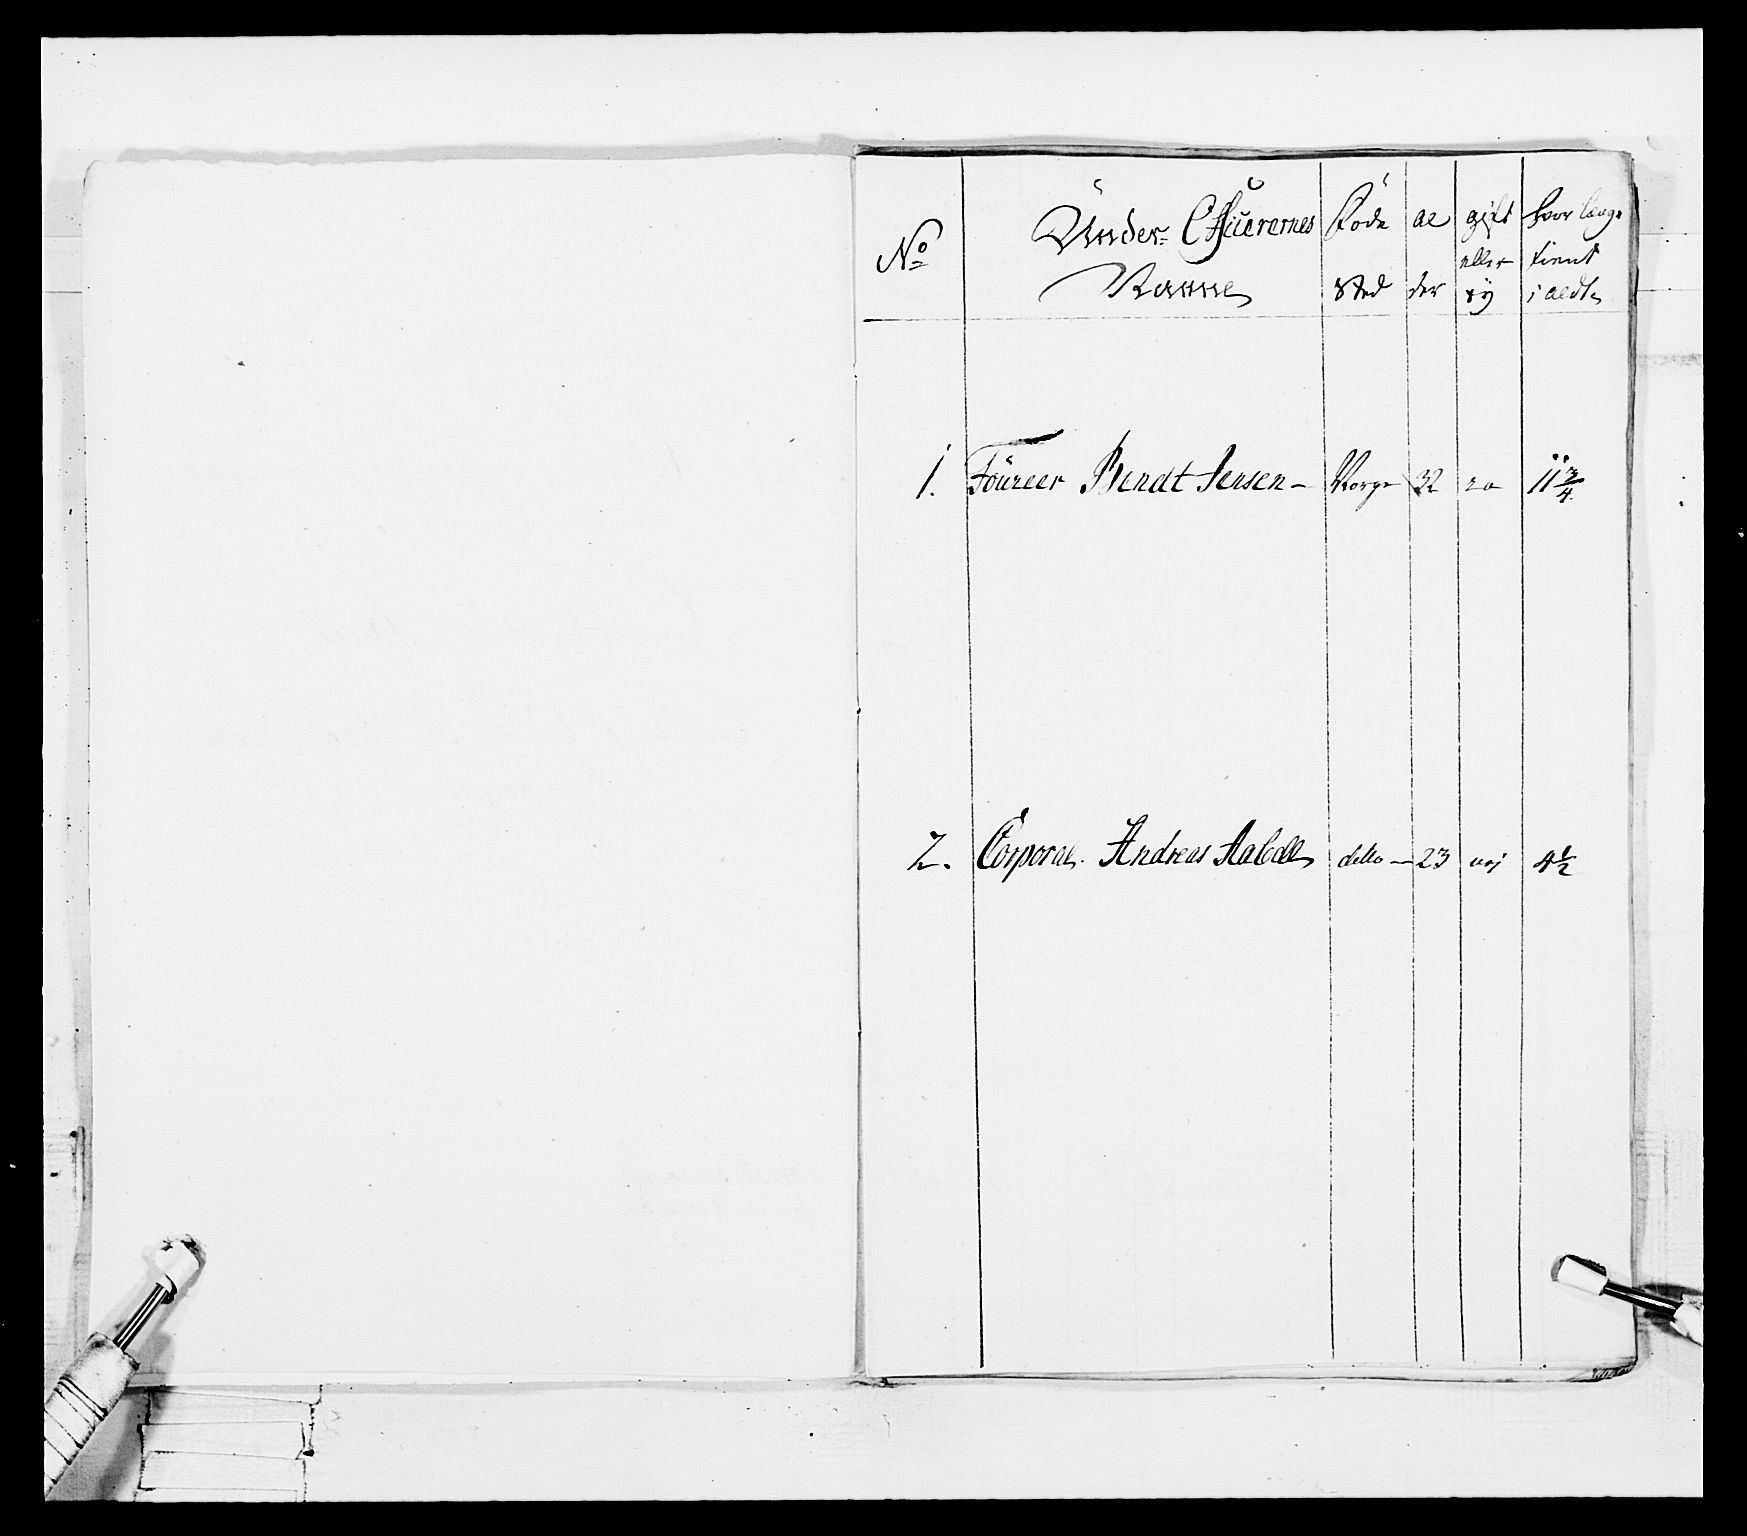 No
Under- Officerernes
Navne
Føde
Sted
al
der
gift
eller
ey
hvor længe
tient
i aldt
1. Foureer Bendt Jensen - Norge 32 11 3/4
2. Corporal. Andreas detto - 23 nej 4 1/2